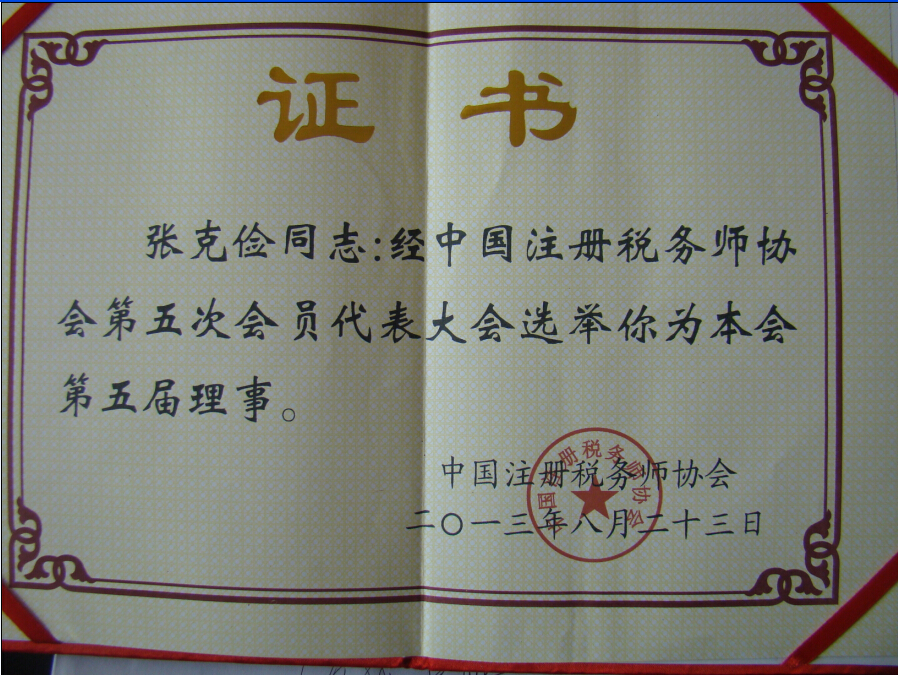 证书
张克俭同志:经中国注册税务师协
会第五次会员代表大会选举你为本会
第五届理事。
中国注册税务师协会
二〇一三年八月二十三日
中国注册税务师协会